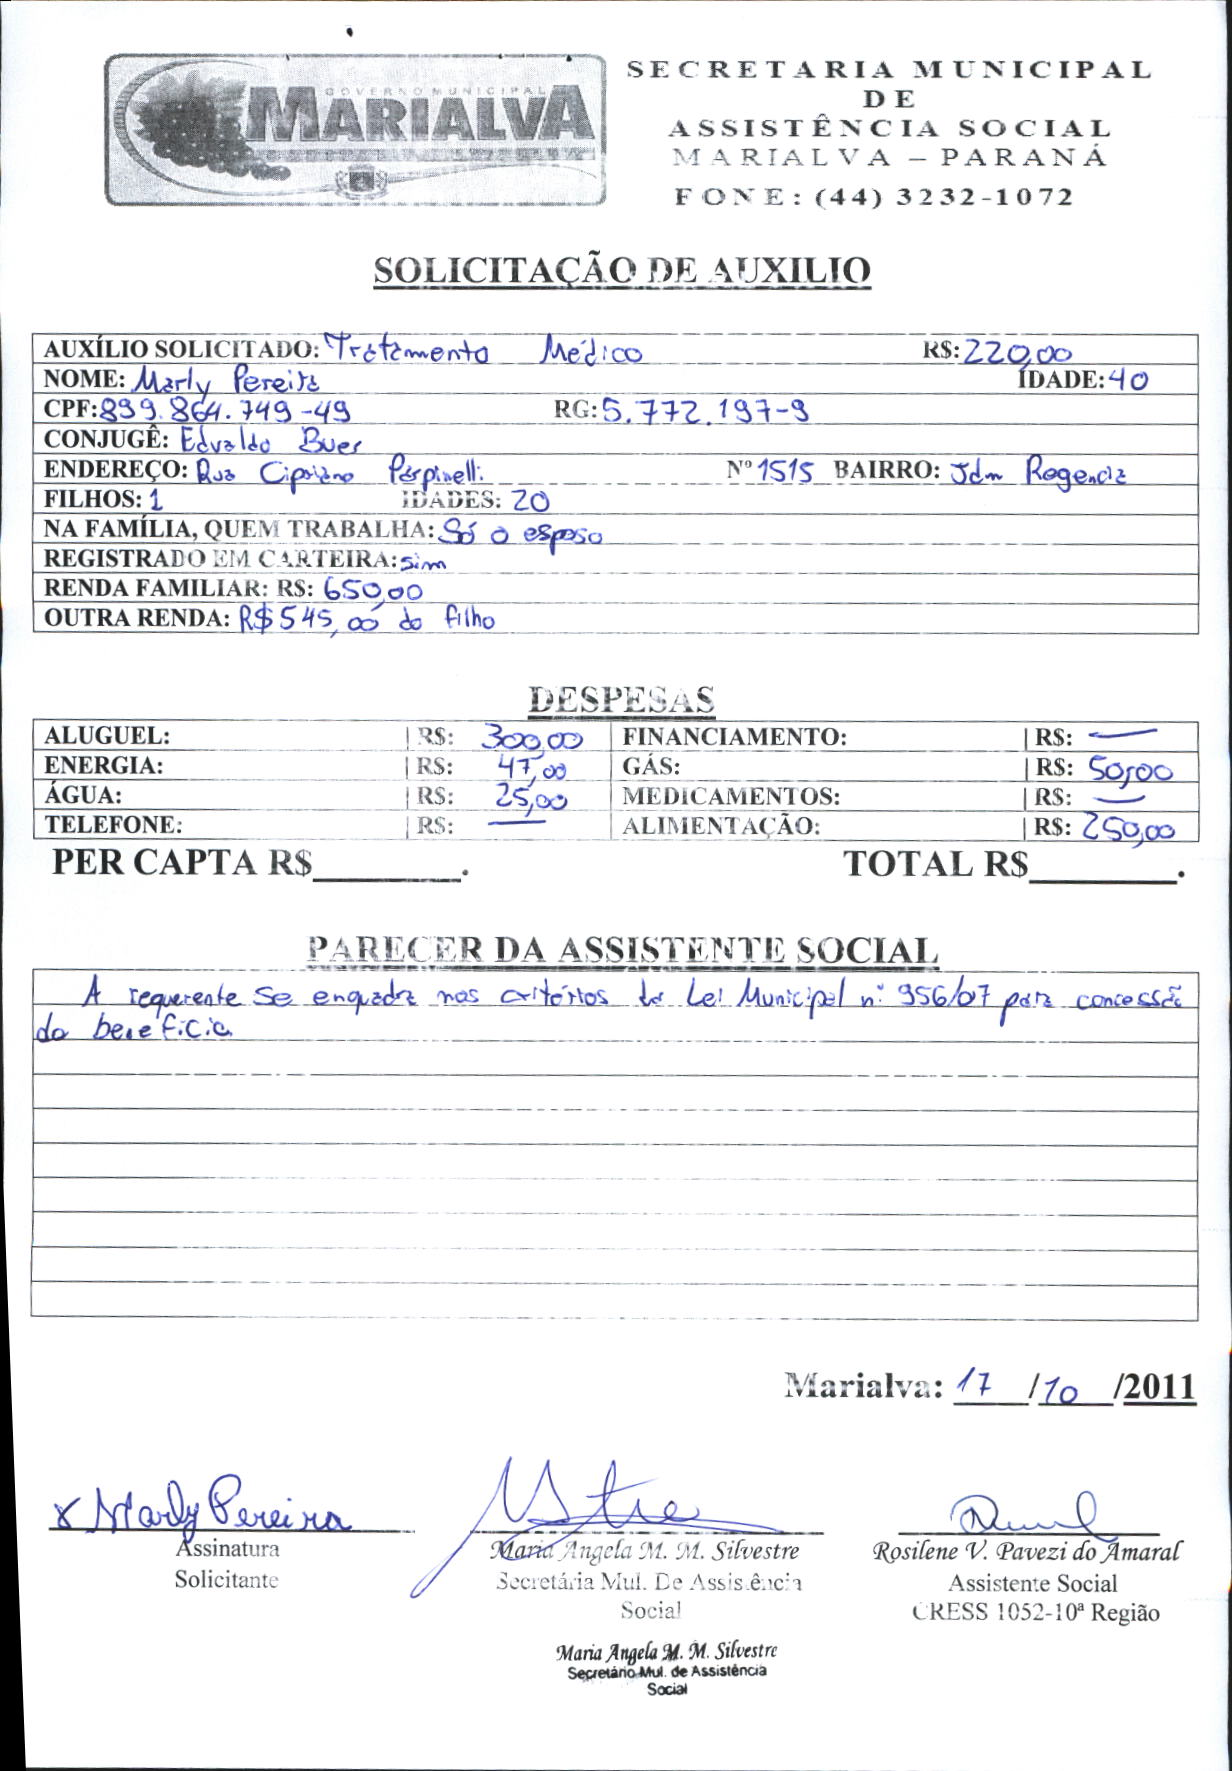 GOVERNO MUNICIPAL
MARIALVA
SECRETARIA MUNICIPAL
DE
ASSISTÊNCIA SOCIAL
MARIALVA – PARANÁ
FONE: (44) 3232-1072
SOLICITAÇÃO DE AUXILIO
AUXÍLIO SOLICITADO: Tratamento Médico R$: 220,00
NOME: Marly Pereira IDADE: 40
CPF: 899.864.749-49 RG: 5.772.197-9
CONJUGÊ: Edvaldo Bues
ENDEREÇO: Rua Cipriano Perpinelli Nº 1515 BAIRRO: Jdm Regencia
FILHOS: 1 IDADES: 20
NA FAMÍLIA, QUEM TRABALHA: Só o esposo
REGISTRADO EM CARTEIRA: sim
RENDA FAMILIAR: R$: 650,00
OUTRA RENDA: R$ 545,00 do filho
DESPESAS
ALUGUEL: R$: 300,00 FINANCIAMENTO: R$: —
ENERGIA: R$: 47,00 GÁS: R$: 50,00
ÁGUA: R$: 25,00 MEDICAMENTOS: R$: —
TELEFONE: R$: — ALIMENTAÇÃO: R$: 250,00
PER CAPTA R$________. TOTAL R$________.
PARECER DA ASSISTENTE SOCIAL
A requerente se enquadra nos critérios da Lei Municipal nº 956/07 para concessão
do beneficio
Marialva: 17 /10 /2011
x Marly Pereira
Assinatura
Solicitante
Maria Angela M. M. Silvestre
Secretária Mul. De Assistência
Social
Rosilene V. Pavezi do Amaral
Assistente Social
CRESS 1052-10ª Região
Maria Angela M. M. Silvestre
Secretário Mul. de Assistência
Social